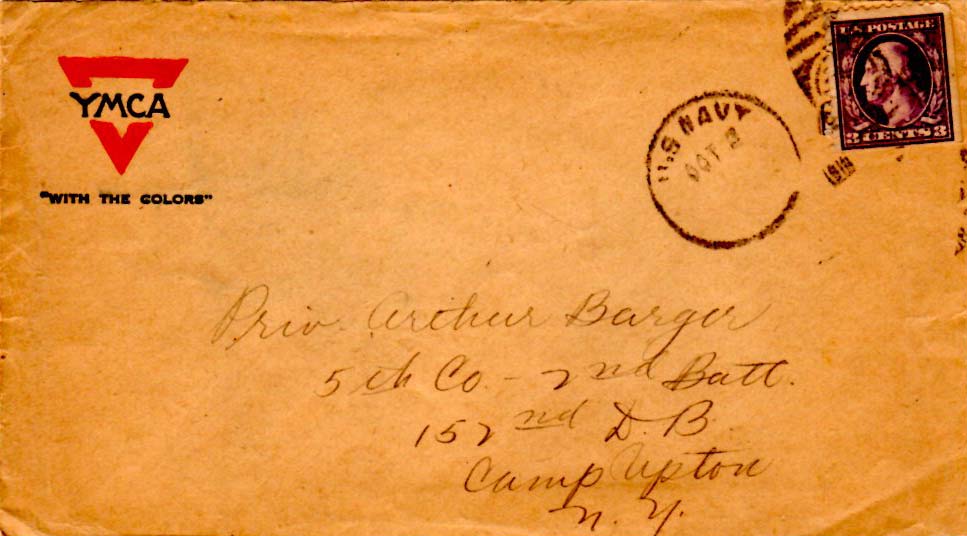 YMCA
"WITH THE COLORS"
U.S NAVY
OCT 2
1918
U.S. POSTAGE
3 CENTS 3
Priv. Arthur Barger
5th Co. - 2nd Batt.
152nd D. B.
Camp Upton
N. Y.